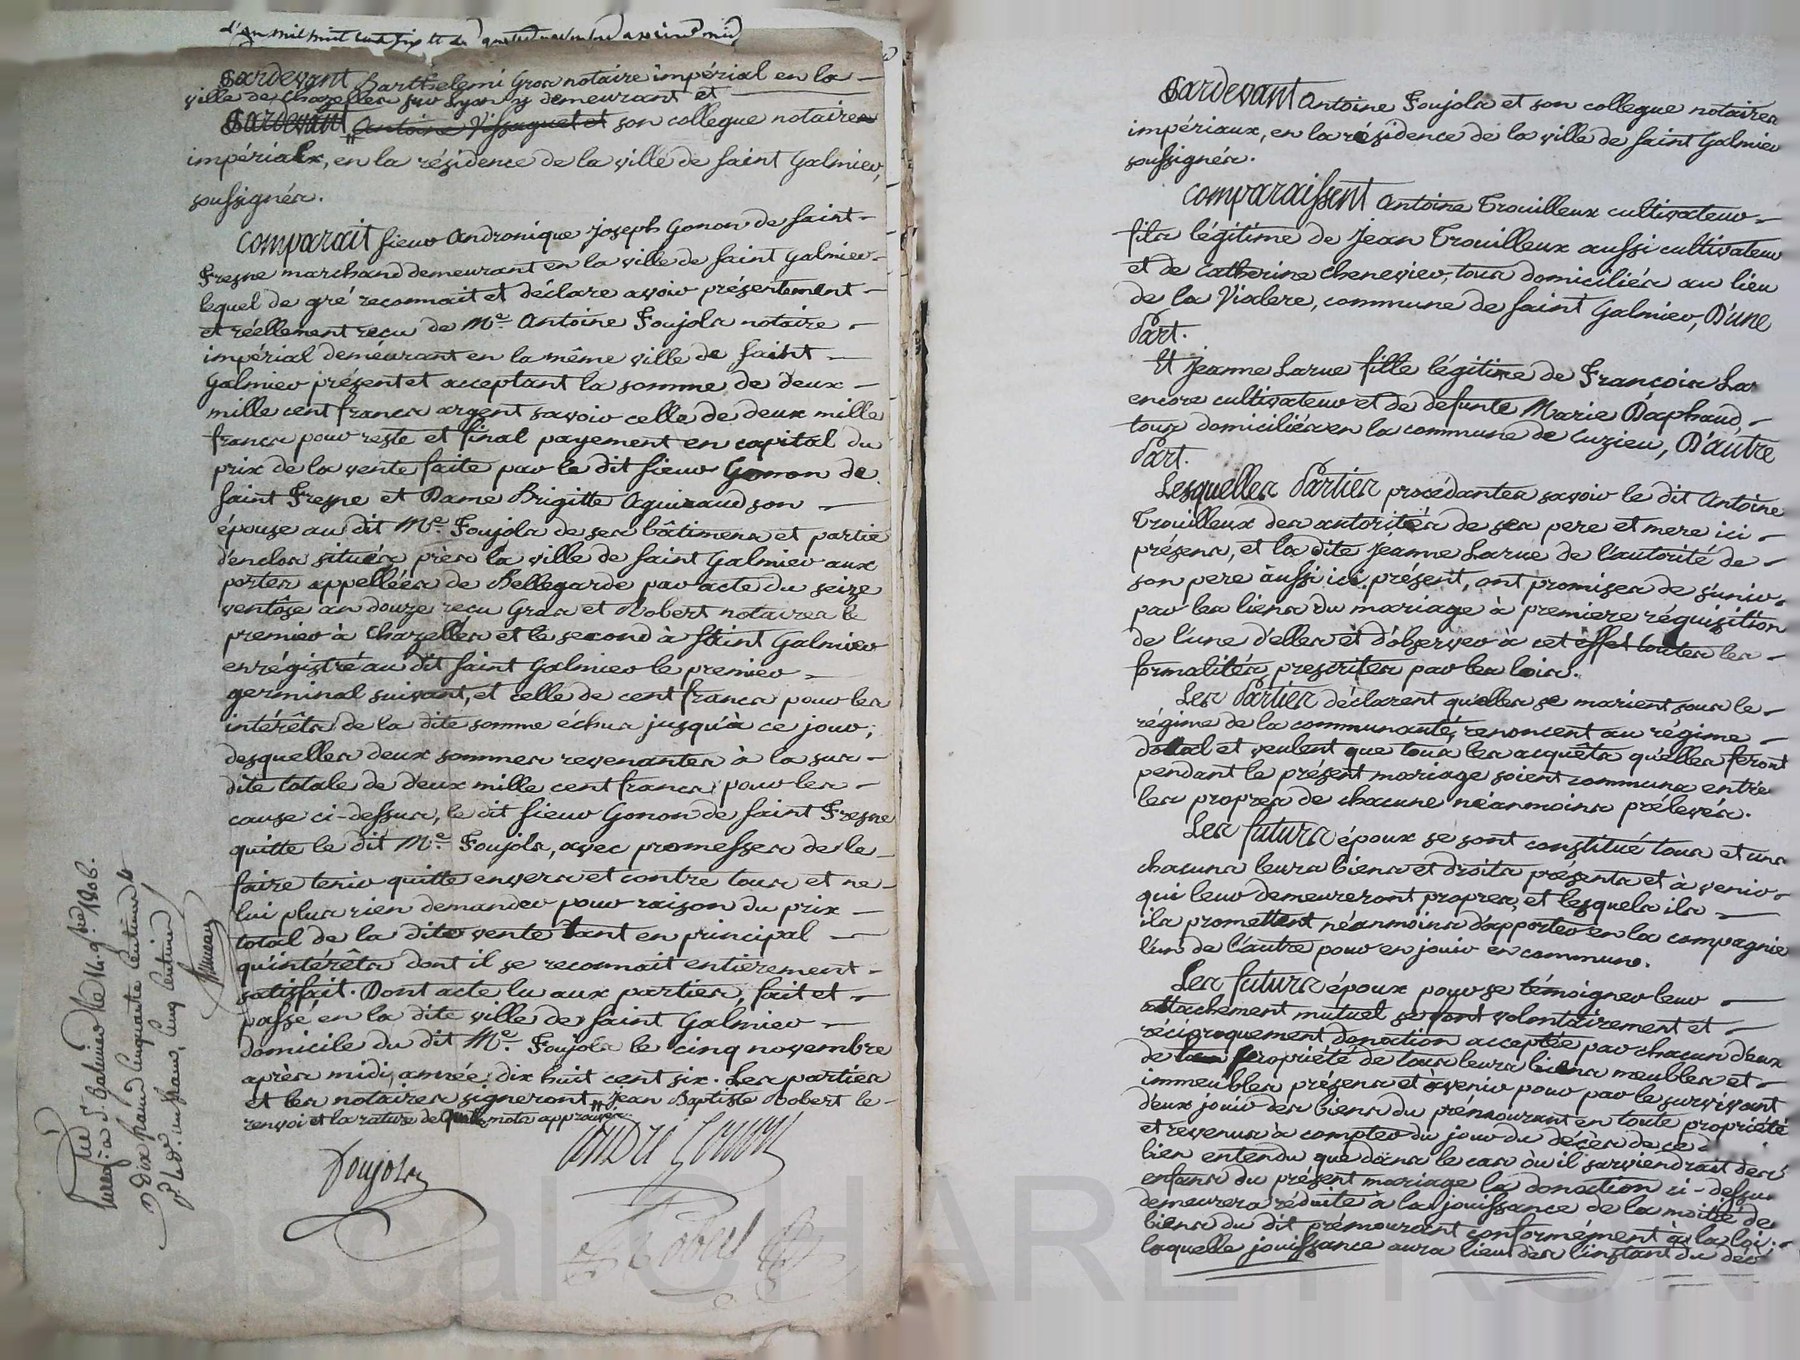 d'an mil huit cent six et le quatre novembre avant midi
Pardevant Barthelemi Gros notaire impérial en la
ville de Chazelles sur Lyon y demeurant et
Pardevant Antoine Vissaguet et son collegue notaires
impérialx, en la résidence de la ville de Saint Galmier,
soussignés.
Comparait sieur Andronique Joseph Gonon de Saint
Fresne marchand demeurant en la ville de Saint Galmier
lequel de gré reconnait et déclare avoir présentement
et réellement reçu de Me. Antoine Foujols notaire
impérial demeurant en la même ville de Saint
Galmier présent et acceptant la somme de deux
mille cent francs argent savoir celle de deux mille
francs pour reste et final payement en capital du
prix de la vente faite par le dit sieur Gonon de
Saint Fresne et Dame Brigitte Aguiraud son
épouse au dit Me. Foujols de ses bâtimens et partie
d'enclos situés près la ville de Saint Galmier aux
portes appellées de Bellegarde par acte du seize
ventôse an douze reçu Gros et Robert notaires le
premier à Chazelles et le second à Saint Galmier
enrégistré au dit Saint Galmier le premier
germinal suivant, et celle de cent francs pour les
intérêts de la dite somme échus jusqu'à ce jour;
desquelles deux sommes revenantes à la sus
dite totale de deux mille cent francs pour les
cause ci-dessus, le dit sieur Gonon de Saint Fresne
quitte le dit Me. Foujols, avec promesses de le
faire tenir quitte envers et contre tous et ne
lui plus rien demander pour raison du prix
total de la dite vente tant en principal
qu'intérêts dont il se reconnait entièrement
satisfait. Dont acte lu aux parties, fait et
passé en la dite ville de Saint Galmier
domicile du dit Me. Foujols le cinq novembre
après midi, année dix huit cent six. Les parties
et les notaires signeront, Jean Baptiste Robert le
renvoi et la rature de quatre mots approuvés
André Gonon
Foujols
Robert
Enregé. à St. Galmier le 14 9bre 1806.
Dix francs cinquante centimes
un franc, cinq centimes
Pardevant Antoine Foujols et son collegue notaires
impériaux, en la résidence de la ville de Saint Galmier
soussignés.
Comparaissent Antoine Trouilleux cultivateur
fils légitime de Jean Trouilleux aussi cultivateur
et de Catherine Chenevier, tous domiciliés au lieu
de la Vialere, commune de Saint Galmier, D'une
Part.
Et Jeanne Larue fille légitime de François La
encore cultivateur et de défunte Marie Daphaud,
tous domiciliés en la commune de Cuzieu, D'autre
Part.
Lesquelles Parties procédantes savoir le dit Antoine
Trouilleux des autorités de ses pere et mere ici
présens, et la dite Jeanne Larue de l'autorité de
son pere aussi ici présent, ont promises de s'unir
par les liens du mariage à premiere réquisition
de l'une d'elles et d'observer à cet effet toutes les
formalités prescrites par les lois.
Les Parties déclarent qu'elles se marient sous le
régime de la communauté, renoncent au régime
dotal et veulent que tous les acquêts qu'elles feront
pendant le présent mariage soient communs entre
les propres de chacune néanmoins prélevés.
Les futurs époux se sont constitué tous et uns
chacuns leurs biens et droits présents et à venir
qui leur demeureront propres, et lesquels ils
ils promettent néanmoins d'apporter en la compagnie
l'un de l'autre pour en jouir en commun.
Les futurs époux pour se témoigner leur
attachement mutuel se font volontairement et
réciproquement donation acceptée par chacun d'eux
de propriété de tous leurs biens meubles et
immeubles présens et avenir pour par le survivant
d'eux jouir des biens du prémourant en toute propriété
et revenus à compter du jour du décès de ce d
bien entendu que dans le cas où il surviendrait des
enfans du présent mariage la donation ci-dessus
demeurera réduite à la jouissance de la moitié des
biens du dit prémourant conformément à la loi;
laquelle jouissance aura lieu dès l'instant du déc
scal CHARLEYRON